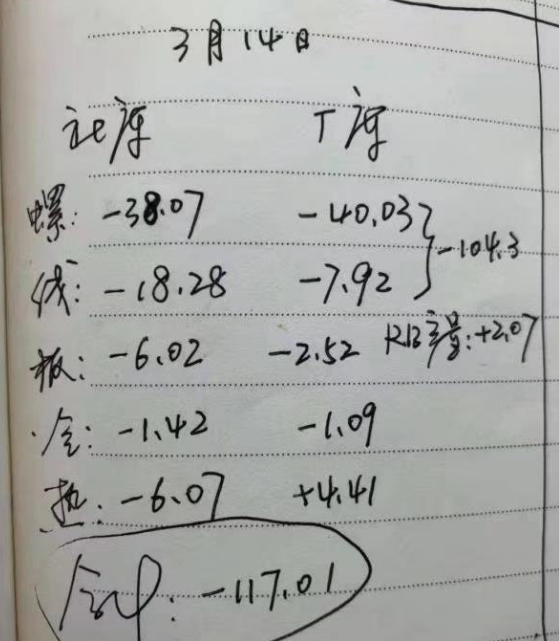 3月14日
社库 T库
螺: -38.07 -40.03
-104.3
线: -18.28 -7.92
板: -6.02 -2.52 RB产量: +2.07
冷: -1.42 -1.09
热: -6.07 +4.41
合计: -117.01